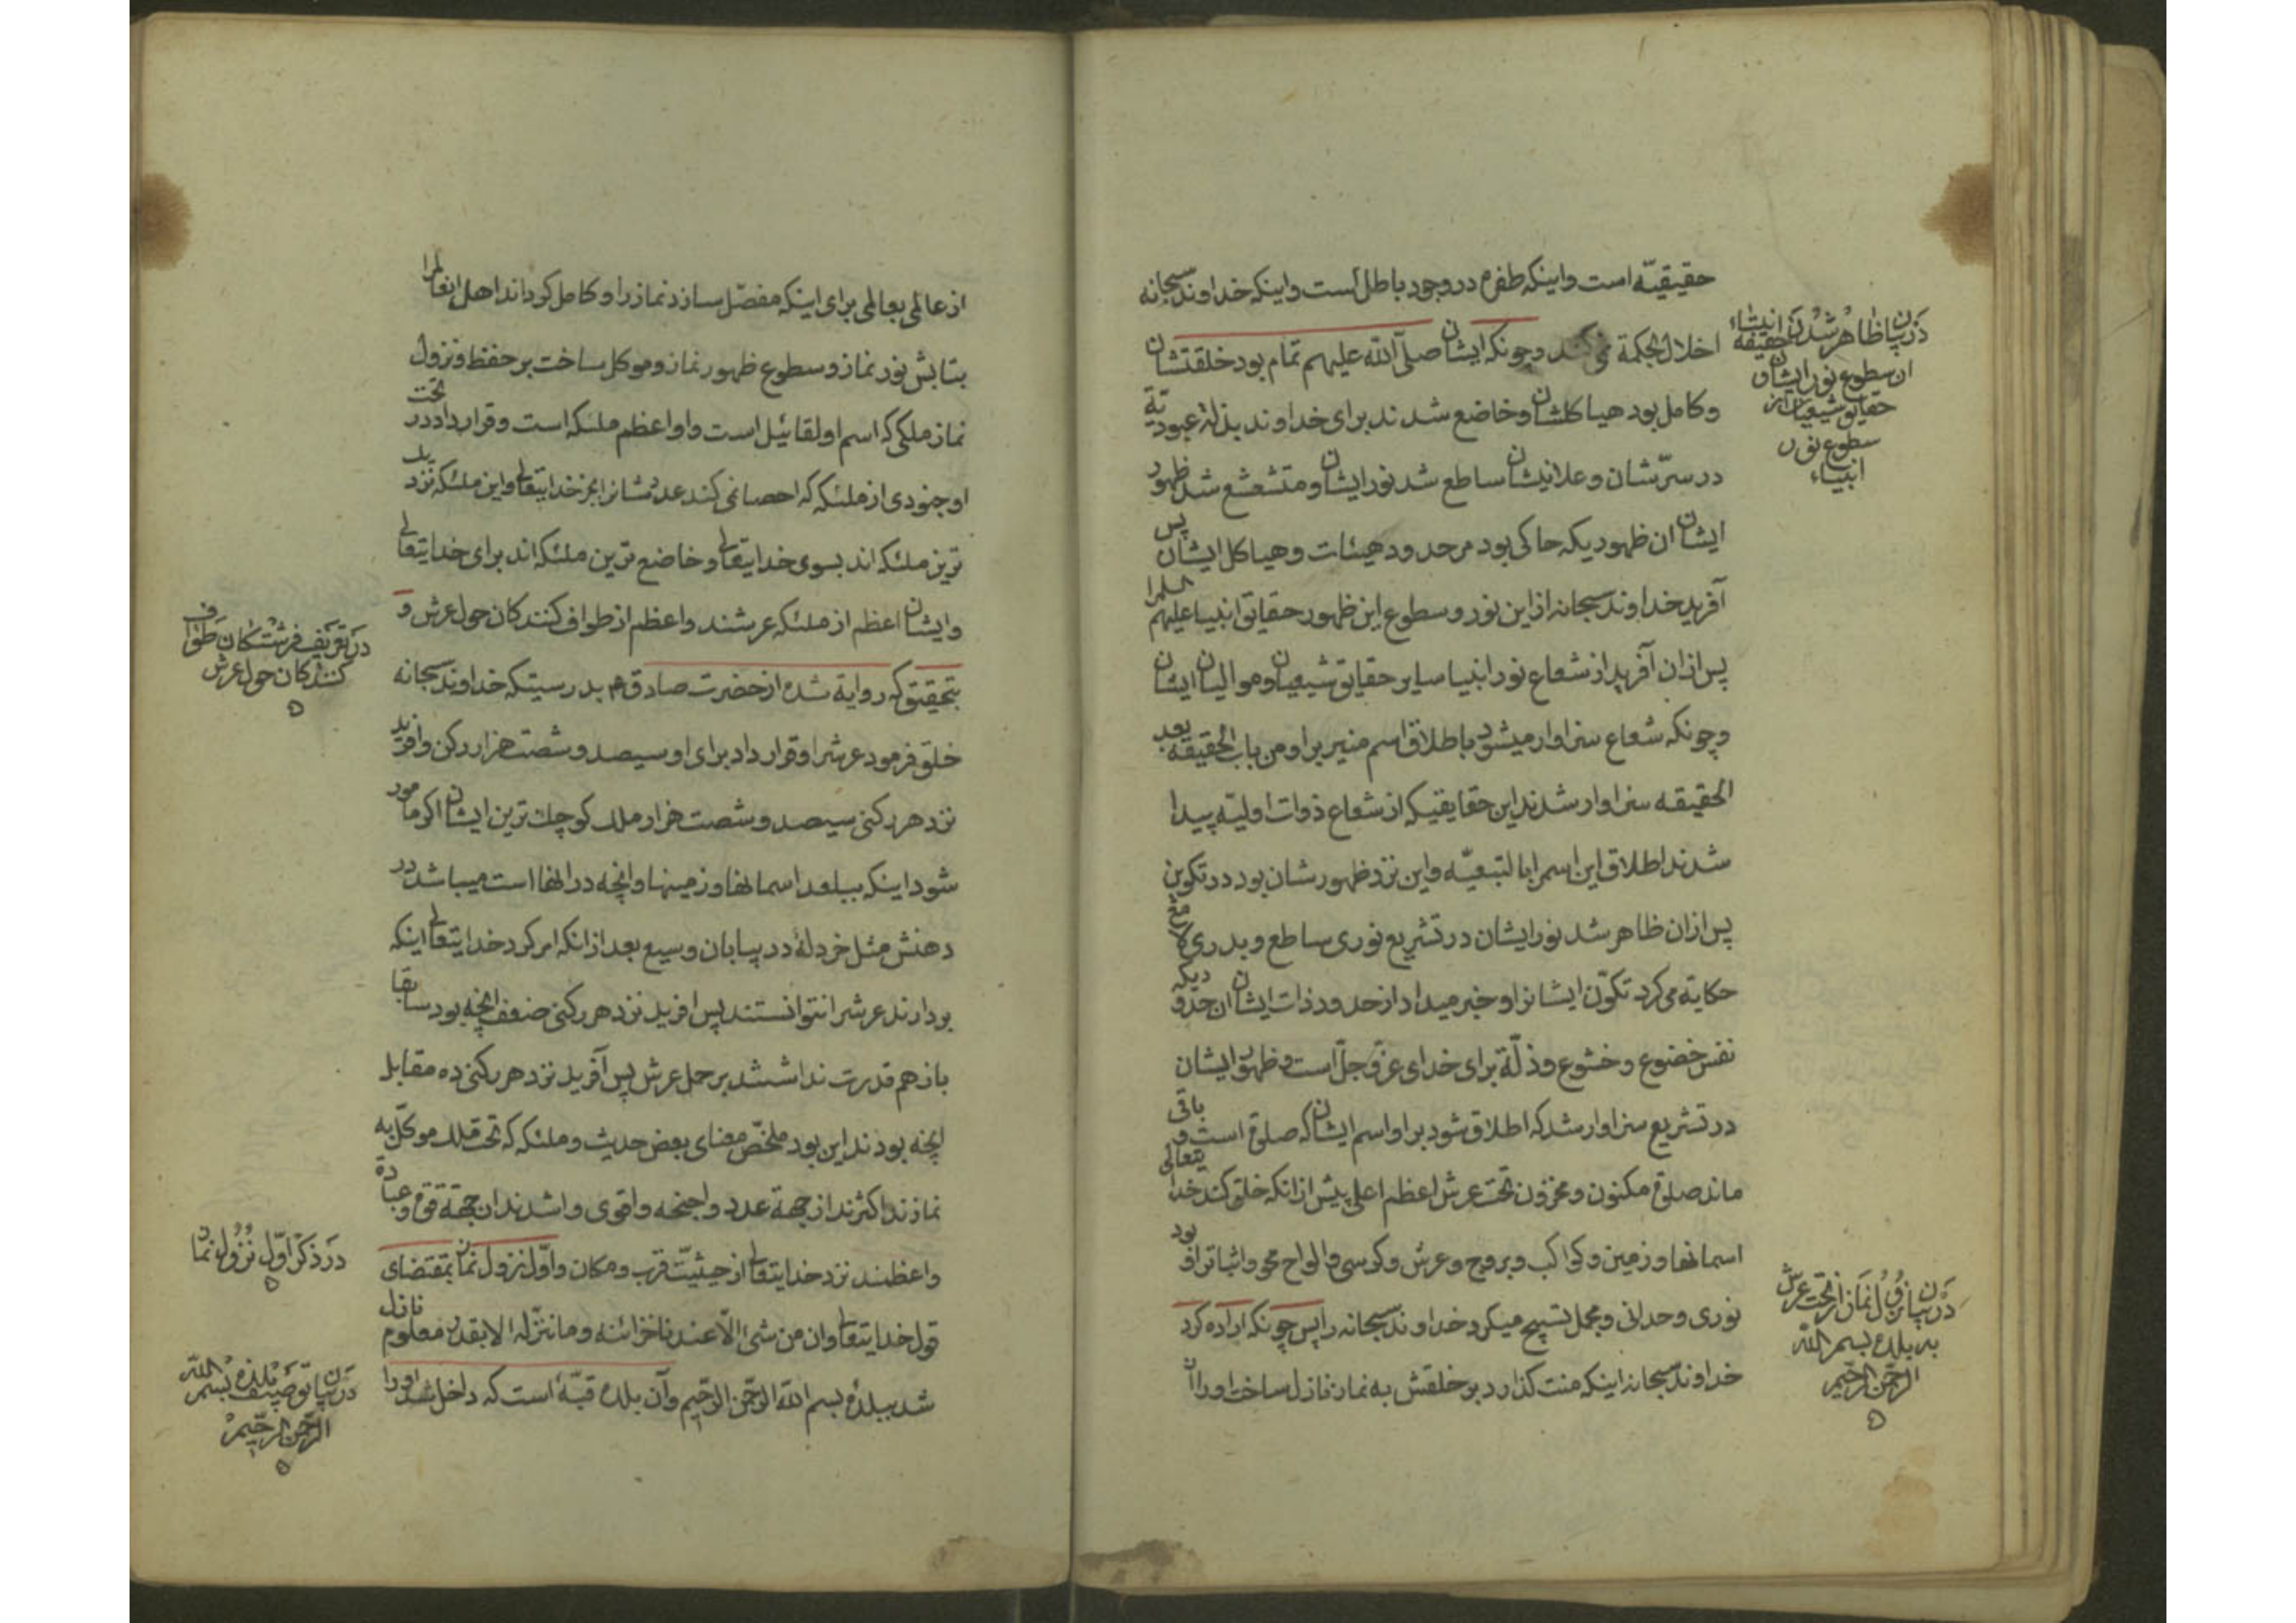 حقیقیّه است واینکه طفره دروجود باطل است واینکه خداوند سبحانه
اخلال بحکمة نمی کند وچونکه ایشان صلّی الله علیهم تمام بود خلقتشان
وکامل بود هیاکلشان وخاضع شدند برای خداوند بذلهٔ عبودیة
در سرّشان وعلانیتشان ساطع شد نورایشان ومتشعشع شد ظهور
ایشان ان ظهوریکه حاکی بود مرحدود وهیئات وهیاکل ایشان پس
آفرید خداوند سبحانه ازاین نور وسطوع این ظهور حقایق انبیا علیهم السلام را
پس ازان آفرید از شعاع نور انبیا سایر حقایق شیعیان وموالیان ایشان
وچونکه شعاع سزاوار میشود باطلاق اسم منیر براو من باب الحقیقه بعد
الحقیقه سزاوار شدند این حقایقیکه از شعاع ذوات اولیّه پیدا
شدند اطلاق این اسم را بالتبعیّه واین نزد ظهورشان بود در تکوین
پس ازان ظاهر شد نورایشان در تشریع نوری ساطع وبدری لامع
حکایة می کرد تکوّن ایشانرا وخبر میداد از حدود ذات ایشان ان حدودیکه
نفس خضوع وخشوع وذلّة برای خدای عزّ وجلّ است وظهور ایشان
در تشریع سزاوار شد که اطلاق شود براو اسم ایشان که صلوة است و باقی
ماند صلوة مکنون ومخزون تحت عرش اعظم اعلی پیش ازانکه خلق کند خدا یتعالی
اسمانها وزمین وکواکب وبروج وعرش وکرسی والواح محو واثبات را و بود
نوری وحدانی ومجمل تسبیح میکرد خداوند سبحانه را پس چونکه اراده کرد
خداوند سبحانه اینکه منت گذارد بر خلقش به نماز نازل ساخت اورا
دربیان ظاهر شدن انبیاء
حقیقه
ان سطوع نورایشان و
حقایق شیعیان از
سطوع نور
انبیاء
دربیان نزول نماز از تحت عرش
به بلده بسم الله
الرحمن الرحیم
ازعالمی بعالمی برای اینکه مفصّل سازد نمازرا وکامل گرداند اهل انعالمرا
بتابش نور نماز وسطوع ظهور نماز وموکل ساخت بر حفظ ونزول
نماز ملکی که اسم اولقائیل است واو اعظم ملئکه است وقرار داد در تحت
او جنودی از ملئکه که احصا نمی کند عددشانرا بجز خدایتعالی واین ملئکه نزدیک
ترین ملئکه اند بسوی خدایتعالی وخاضع ترین ملئکه اند برای خدایتعالی
وایشان اعظم از ملئکه عرشند واعظم از طواف کنندکان حول عرش و
بتحقیق که روایة شده از حضرت صادق ع بدرسیتکه خداوند سبحانه
خلق فرمود عرشرا وقرار داد برای او سیصد وشصت هزار رکن وافرید
نزد هر رکنی سیصد وشصت هزار ملک کوچک ترین ایشان اکر مامور
شود اینکه ببلعد اسمانها وزمینها وانچه در انها است میباشد در
دهنش مثل خردلهٔ در بیابان وسیع بعد ازانکه امر کرد خدایتعالی اینکه
بردارند عرشرا نتوانستند پس افرید نزد هر رکنی ضعف انچه بود سابقا
باز هم قدرت نداشتند بر حمل عرش پس آفرید نزد هر رکنی ده مقابل
انچه بودند این بود ملخّص معنای بعض حدیث وملئکه که تحت ملک موکّل به
نمازند اکثرند از جهة عدد واجنحه واقوی واشدند از جهة قوة وعبادة
واعظمند نزد خدایتعالی از حیثیّت قرب ومکان واوّل نزول نماز بمقتضای
قول خدایتعالی وان من شئ الّا عندنا خزائنه وما ننزّله الا بقدر معلوم نازل
شد ببلدهٔ بسم الله الرحمن الرحیم وآن بلده قبّهٔ است که داخل شد اورا
در تعریف فرشتکان طواف
کنندکان حول عرش
در ذکر اوّل نزول نماز
دربیان توصیف بلده بسم الله
الرحمن الرحیم